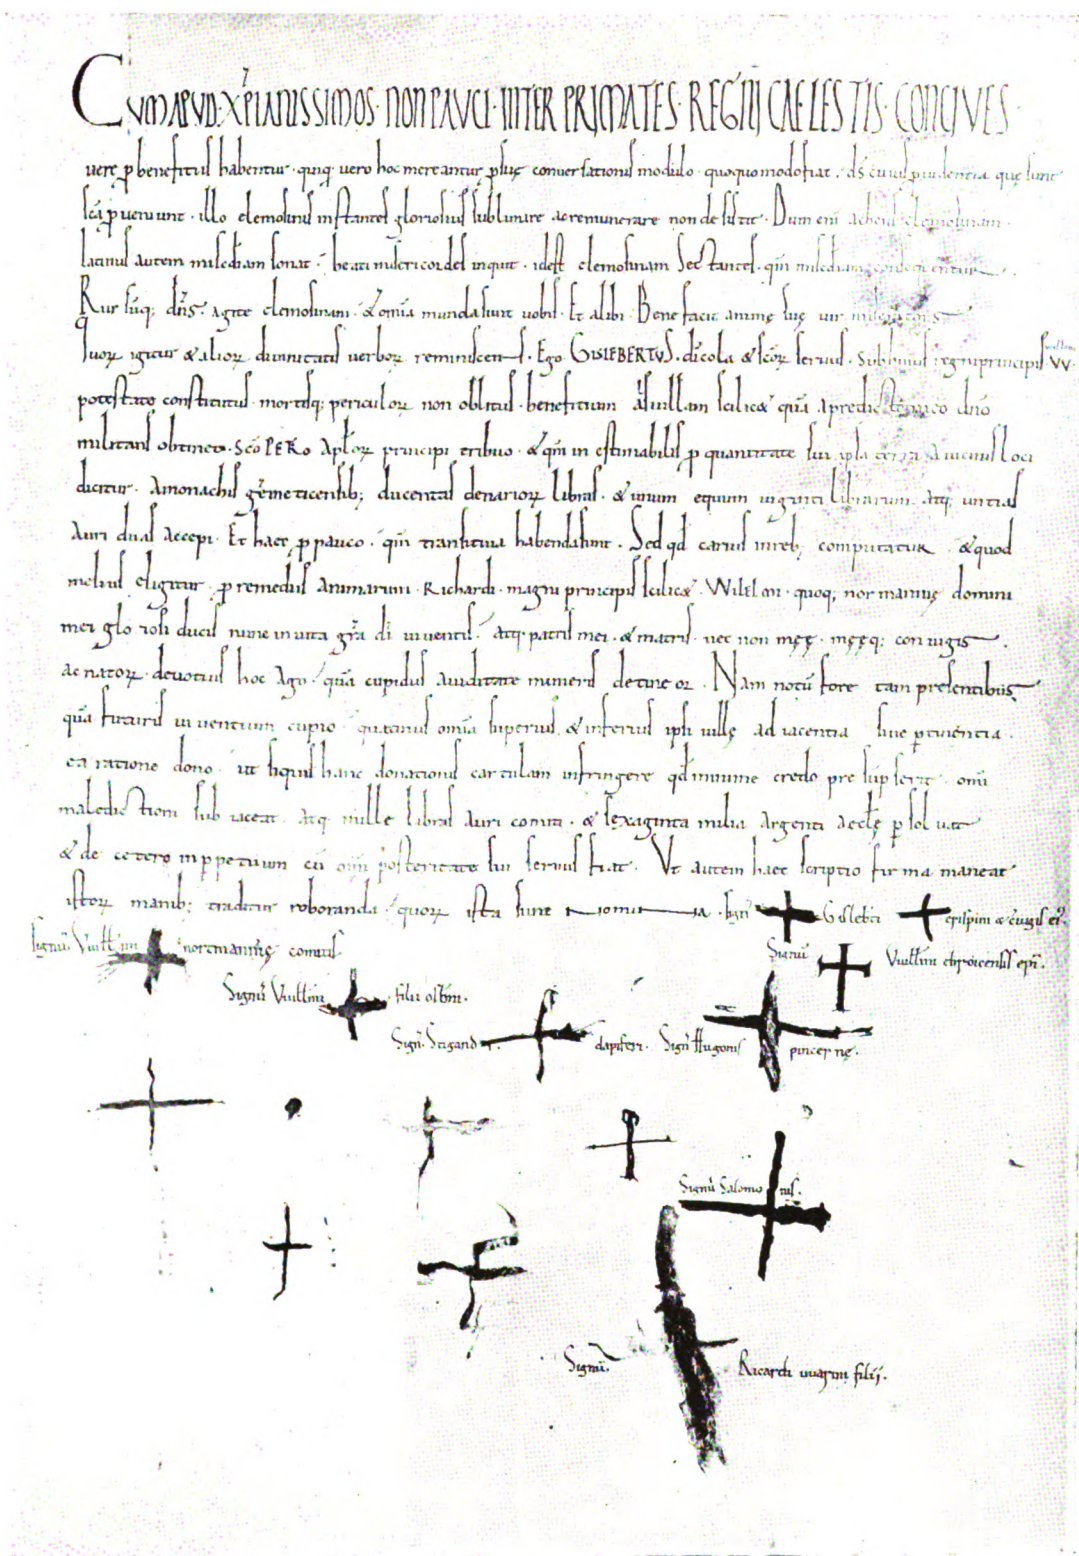 CUMAPUD·XPIANISSIMOS· NON PAUCI· INTER PRIMATES· REGNI CAELESTIS· CONCIVES·
vere p benefitiis habentur· quiq; vero hoc mercantur p suę conversationis modulo· quoquomodo fiat· ds cuius prudentia quę sunt
sca pveniunt· illo elemosinis instantes gloriosius sublimare ac remunerare non desistit· Dum eni elemosinam·
latinus autem misediam sonat· beati misericordes inquit· idest elemosinam sectantes· qm misediam consequentur·
Rursuq; dns· agite elemosinam· & omia munda sunt vobis· Et alibi· Bene facit animę suę vir misericors
Quorz igitur & aliorz divinitatis verborz reminiscens· Ego GISLEBERTUS· dicola & scorz servus· Sub huius regni principis W·
potestate constitutus· mortisq; periculorz non oblitus· benefitium villam scilic& qua a predicto meo dno
militans obtineo· Sco PETRo aplorz principi tribuo· & qm inestimabilis p quantitate sui ipsa terra a vicinis loci
dicitur· A monachis gemeticensib; ducentas denariorz libras· & unum equum viginti librarum atq; untias
auri duas accepi· Et haec p pauco· qm transitiva habenda sunt· Sed qd carius in reb; computatur· & quod
melius eligitur· p remediis animarum· Richardi· magni principis scilic&· Willelmi· quoq; normannię domini
mei gloriosi ducis nunc in vita gra di viventis· atq; patris mei· & matris· nec non męę· męęq; coniugis·
ac natorz· devotius hoc ago· qua cupidus aviditate muneris detineor· Nam notu fore tam presentibus
qua futuris viventium cupio· quatinus omia superius & inferius ipsi villę adiacentia sive ptinentia·
ea ratione dono· ut siquis hanc donationis cartulam infringere qd minime credo presupserit· omi
maledictioni subiaceat· atq; mille libras auri comiti· & sexaginta milia argenti aeclę psolvat
& de cetero inppetuum cu omi posteritate sui servus fiat· Ut autem haec scriptio firma maneat
istorz manib; traditur roboranda· quorz ista sunt nomina· Sign Gisleb&ti crispini & ejugis ei·
Signu Vuillmi normannię comitis· Signu Vuillmi ebroicensis epi·
Signu Vuillmi filii osbni·
Signu Stigand dapiferi· Signu Hugonis pincernę·
Signu Salomonis·
Signu· Ricardi uuarini filij·